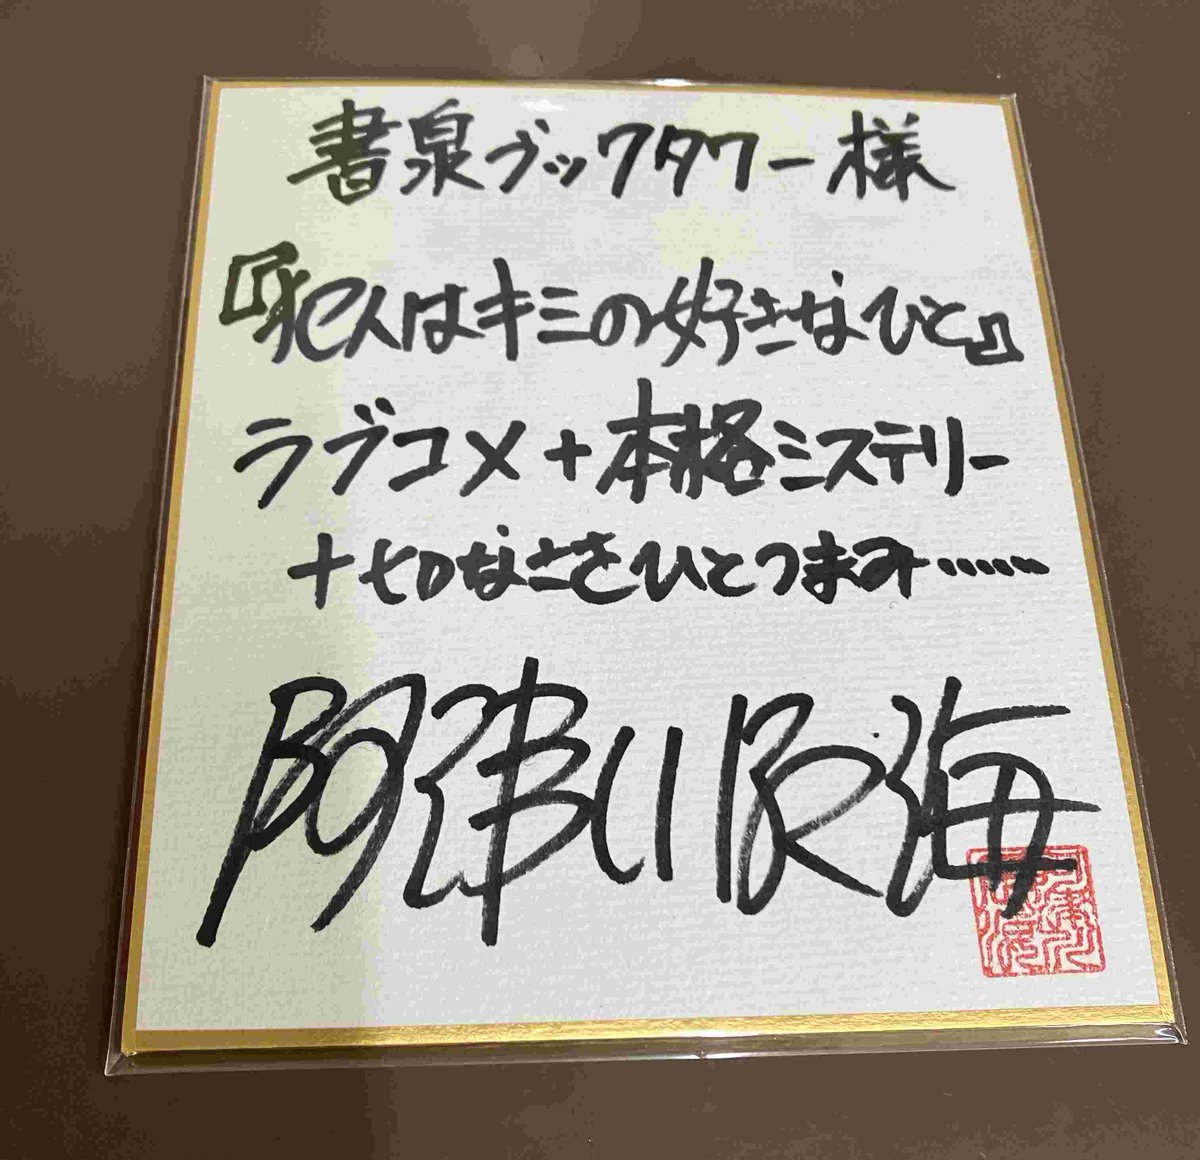 書泉ブックタワー様
『犯人はキミの好きなひと』
ラブコメ+本格ミステリー
+切なさをひとつまみ……
阿津川辰海